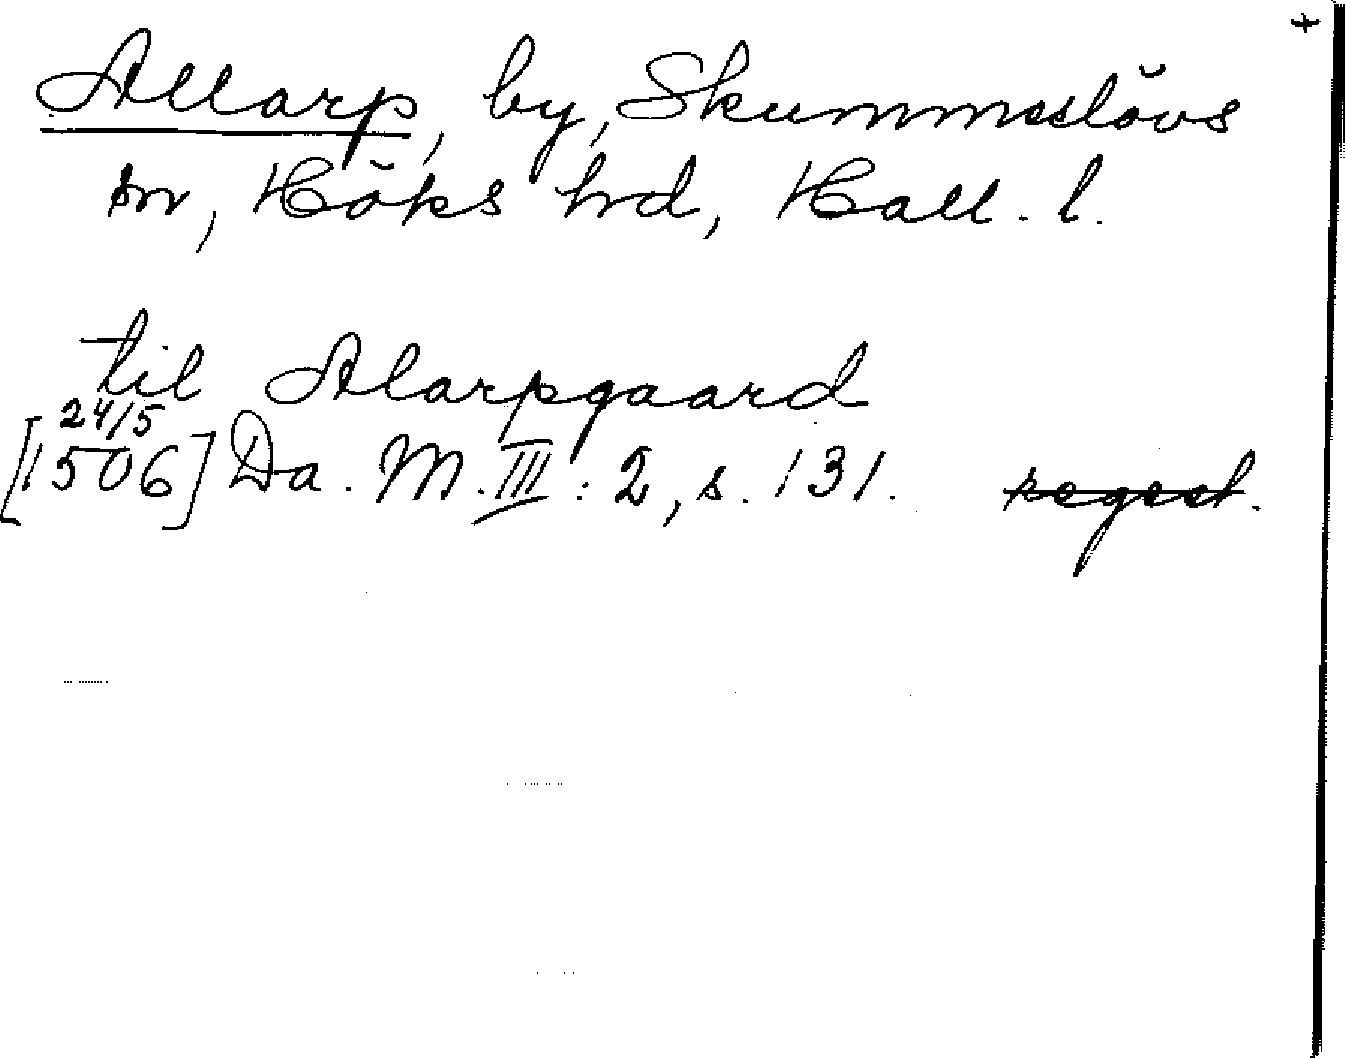 +
Allarp, by, Skummeslövs
sn, Höks hd, Hall. l.
til Alarpgaard
24/5
[1506] Da. M. III: 2, s. 131. regest.